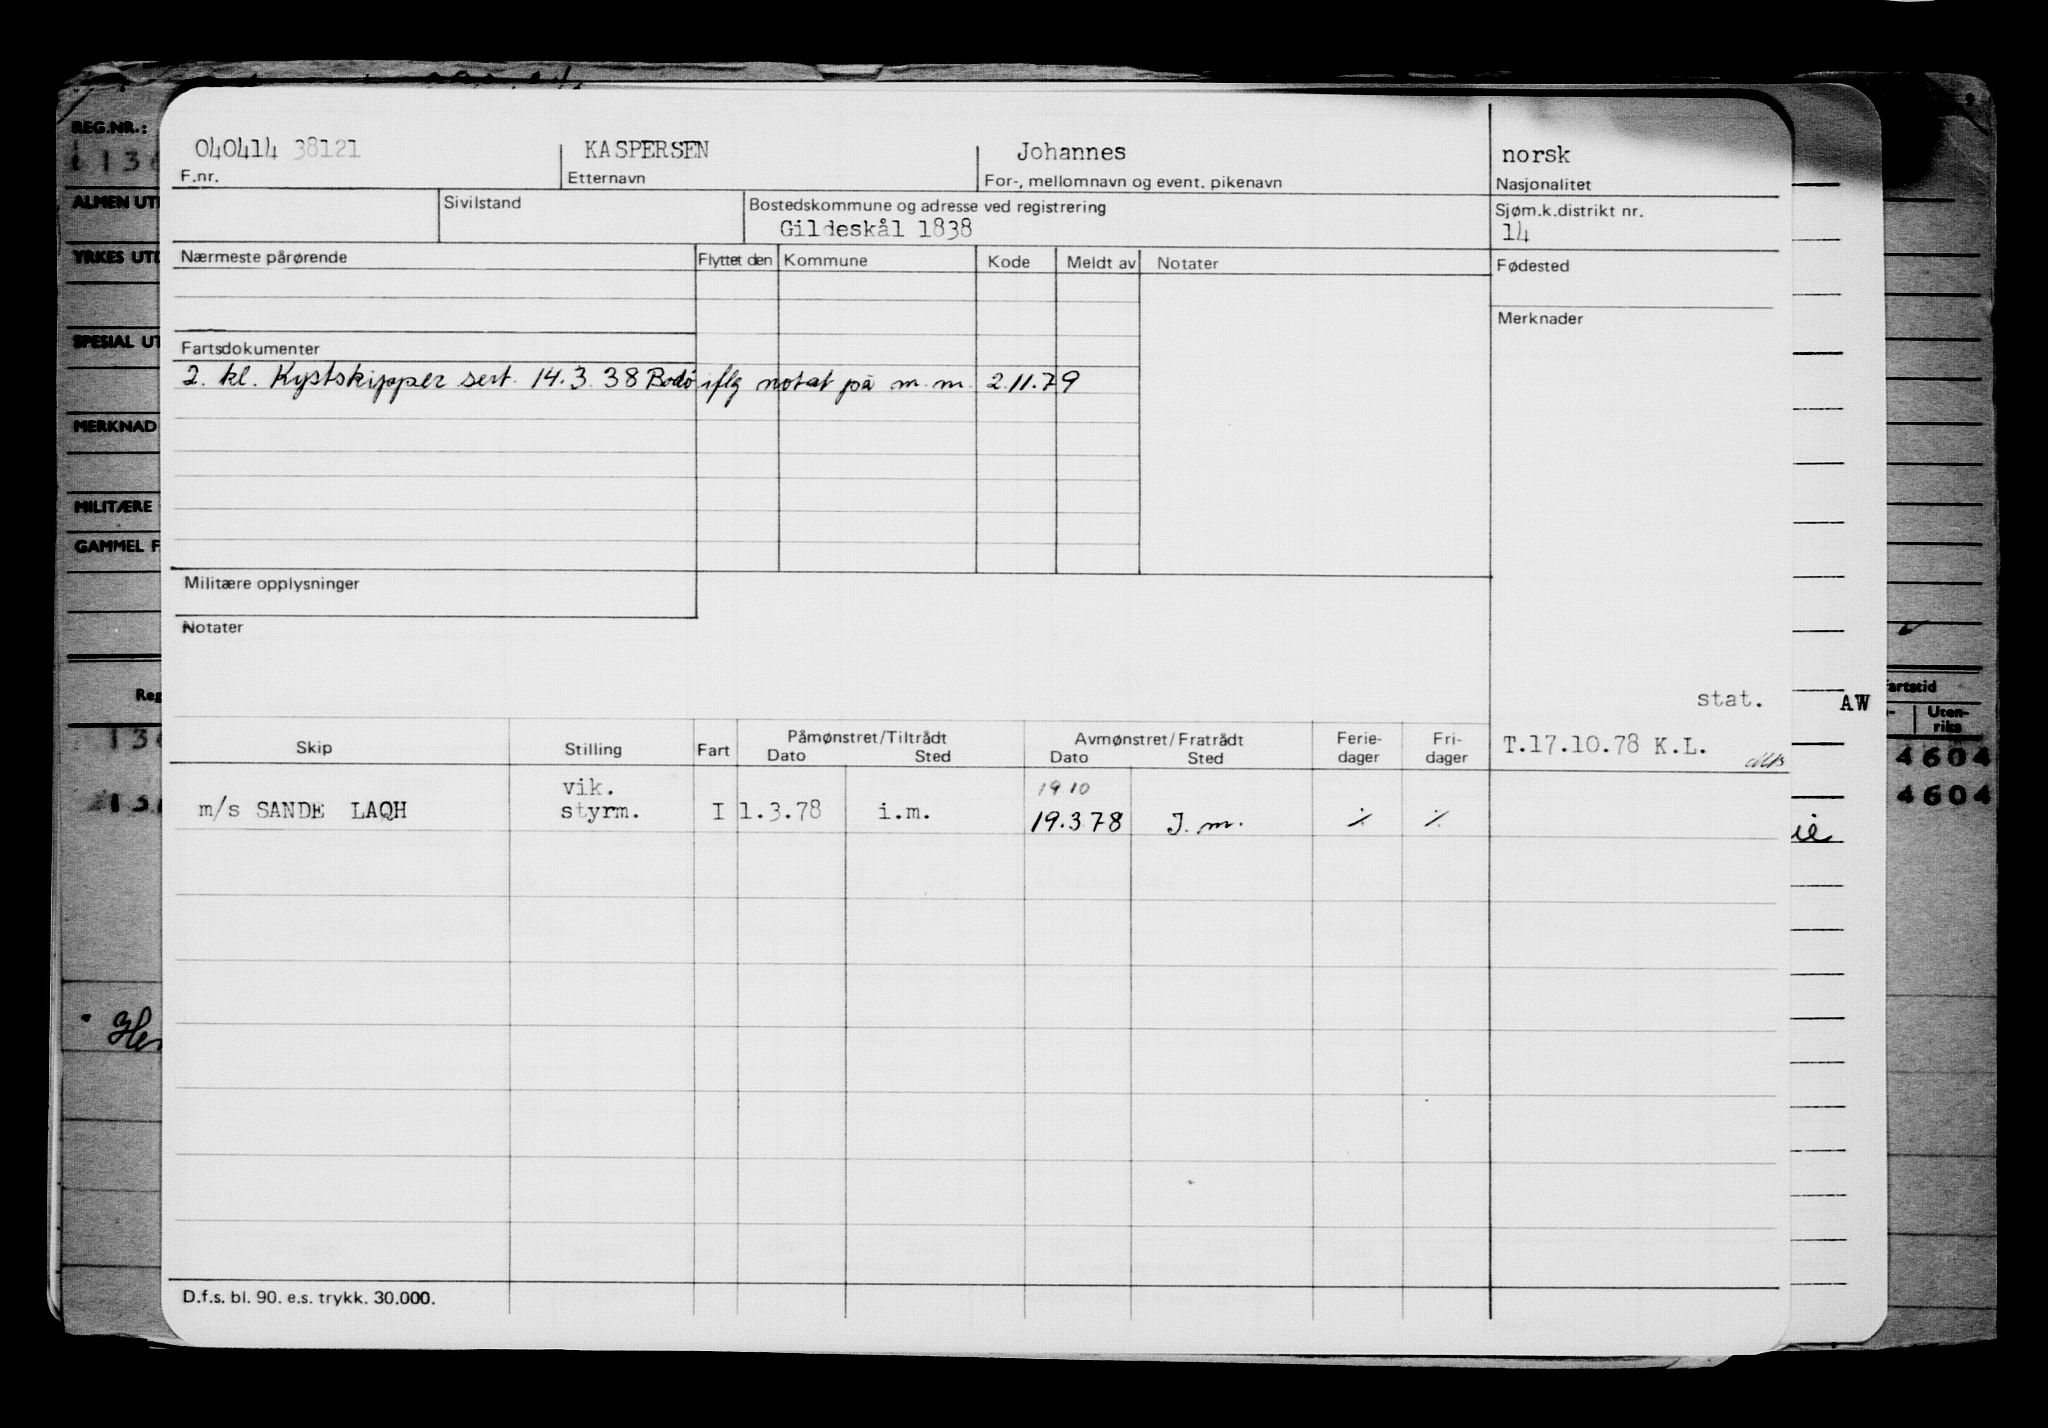 REG.NR.:
ALMEN UT
YRKES UT
SPESIAL UT
MERKNAD
MILITÆRE
GAMMEL F
Reg
Her
040414 38121 KASPERSEN Johannes norsk
F.nr. Etternavn For-, mellomnavn og event. pikenavn Nasjonalitet
Sivilstand Bostedskommune og adresse ved registrering Sjøm.k.distrikt nr.
Gildeskål 1838 14
Nærmeste pårørende Flyttet den Kommune Kode Meldt av Notater Fødested
Merknader
Fartsdokumenter
2. kl. Kystskipper sert. 14.3.38 Bodø iflg notat på m.m. 2.11.79
Militære opplysninger
Notater
stat. AW
Skip Stilling Fart Påmønstret/Tiltrådt Avmønstret/Fratrådt Ferie- Fri-
Dato Sted Dato Sted dager dager
T.17.10.78 K.L.
vik. 19 10
m/s SANDE LAQH styrm. I 1.3.78 i.m. 19.3.78 I.m. ⁒ ⁒
D.f.s. bl. 90. e.s. trykk. 30.000.
artstid
Uten-
riks
4604
4604